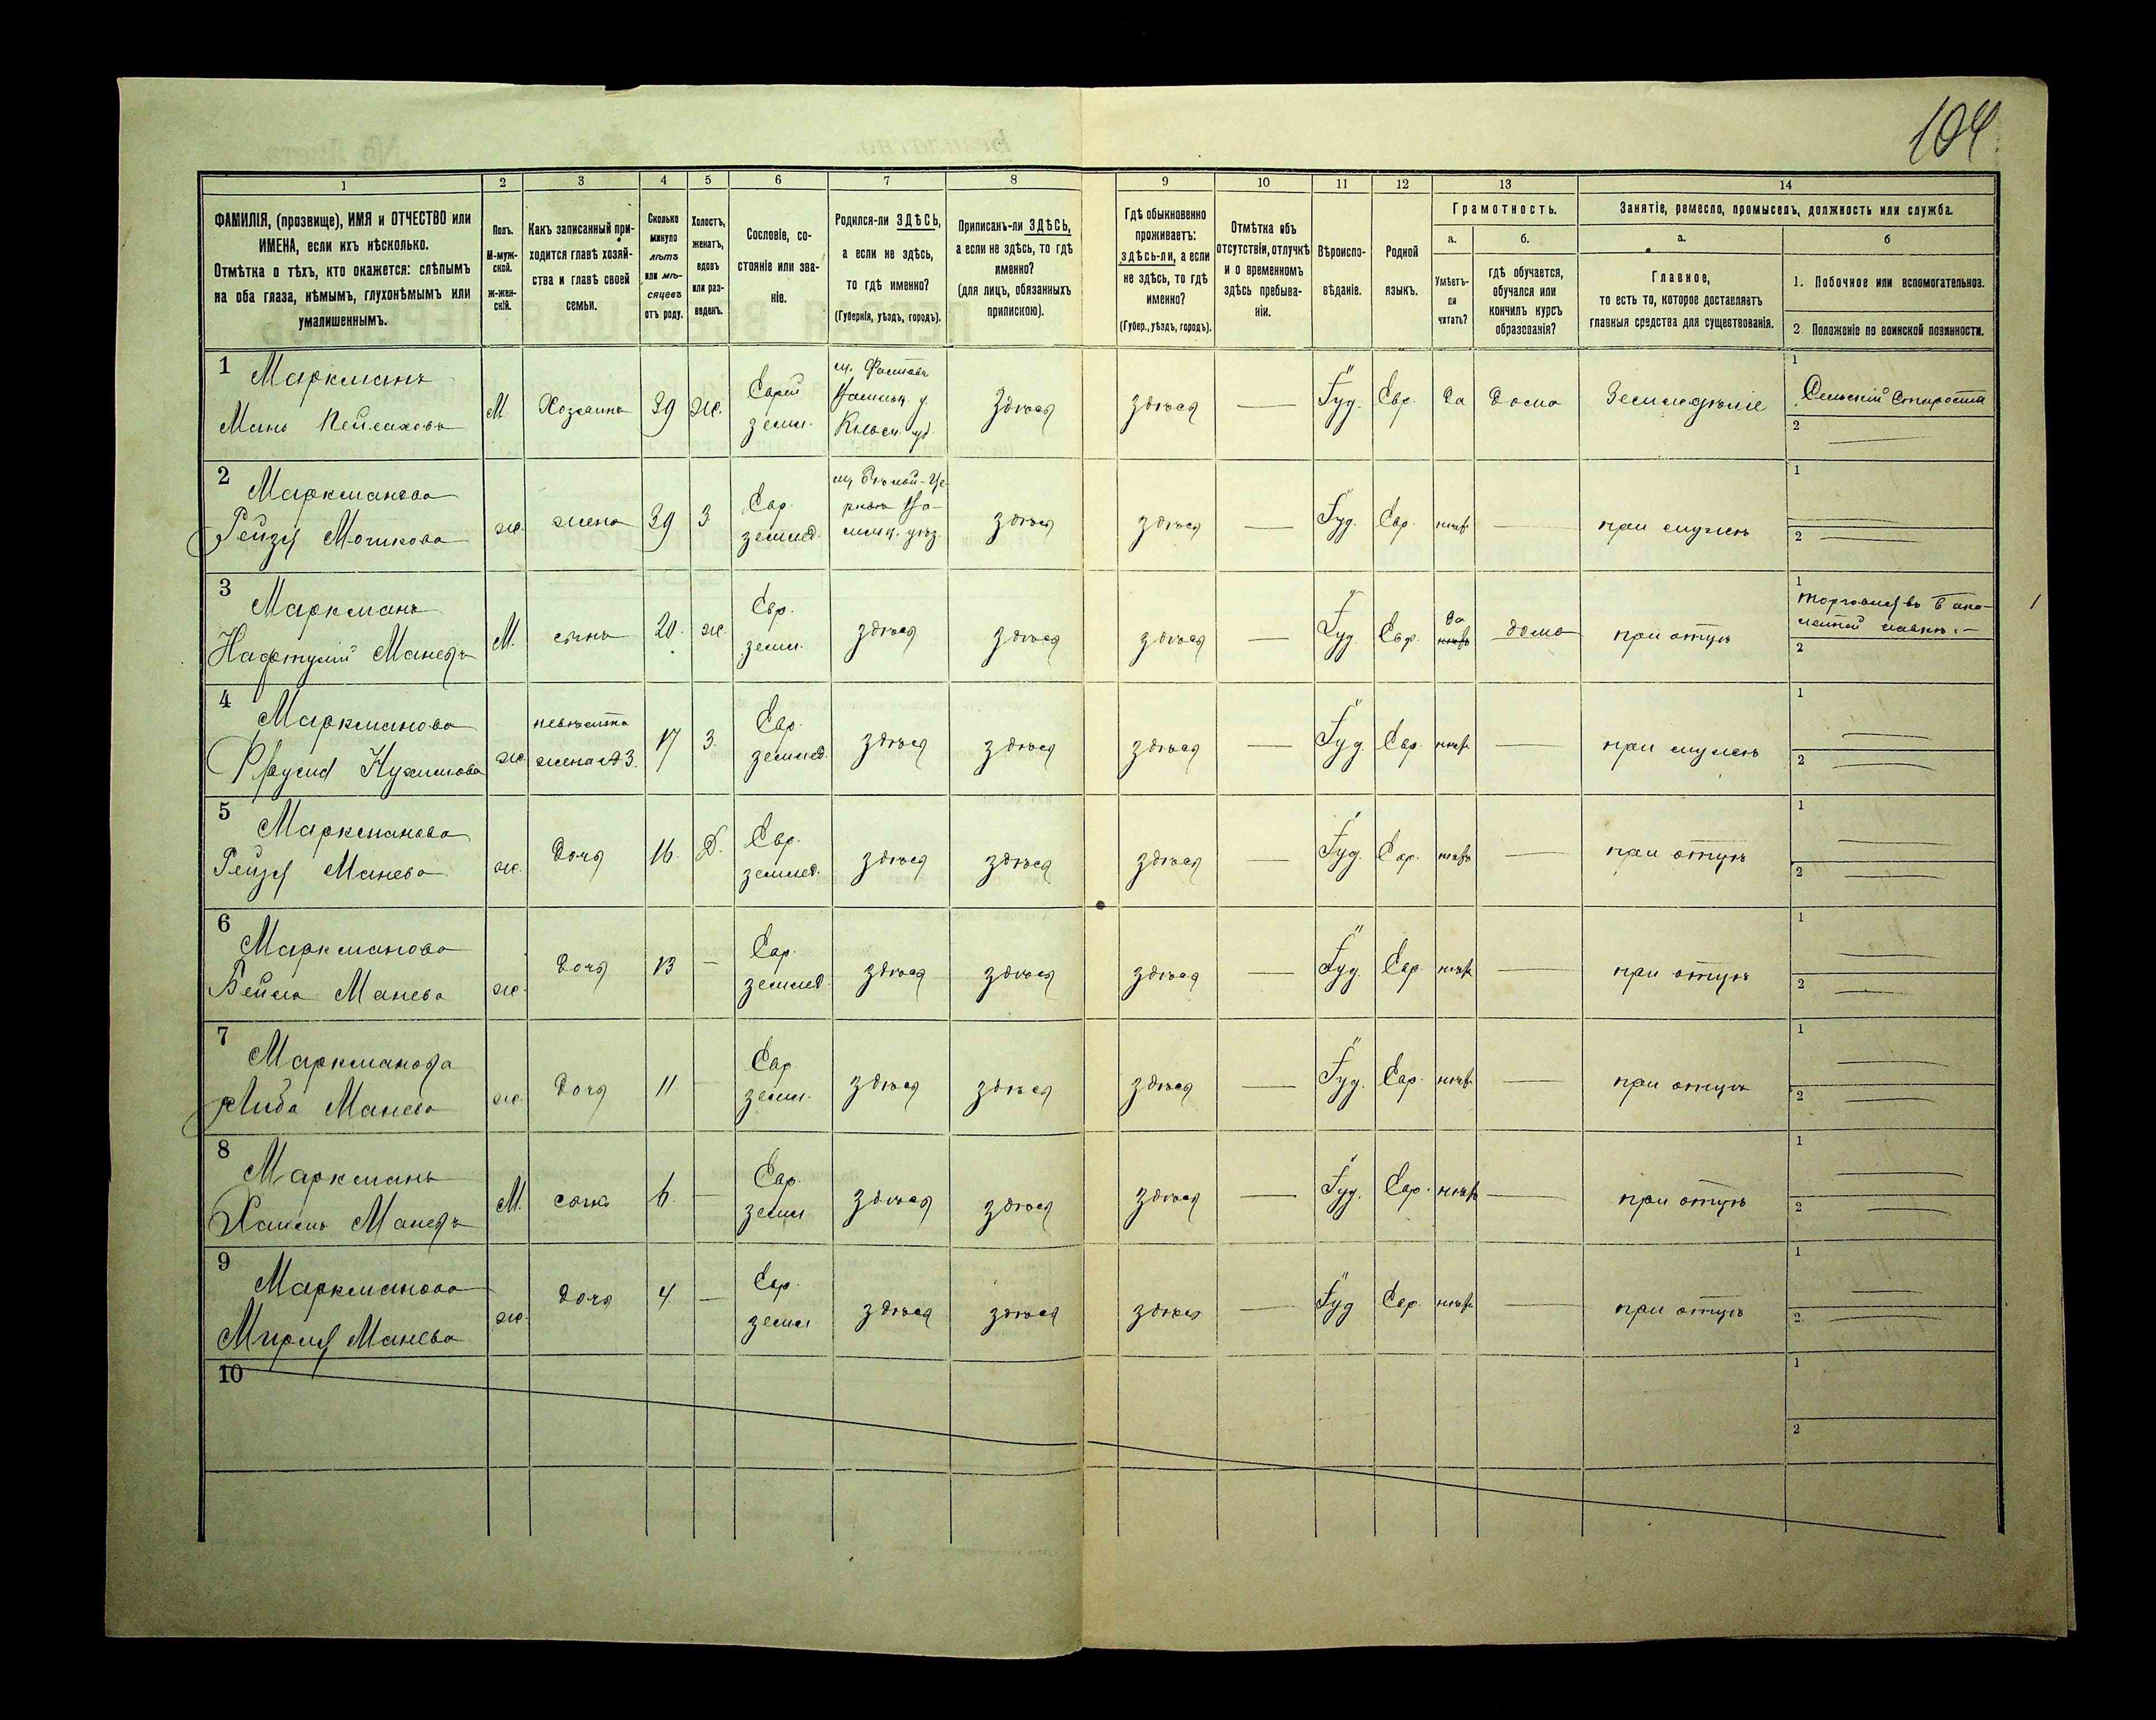 104
1 2 3 4 5 6 7 8 9 10 11 12 13 14
ФАМИЛІЯ, (прозвище), ИМЯ и ОТЧЕСТВО или
ИМЕНА, если ихъ нѣсколько.
Отмѣтка о тѣхъ, кто окажется: слѣпымъ
на оба глаза, нѣмымъ, глухонѣмымъ или
умалишеннымъ.
Полъ.
М-муж-
ской.
ж-жен-
скій.
Какъ записанный при-
ходится главѣ хозяй-
ства и главѣ своей
семьи.
Сколько
минуло
лѣтъ
или мѣ-
сяцевъ
отъ роду.
Холостъ,
женатъ,
вдовъ
или раз-
веденъ.
Сословіе, со-
стояніе или зва-
ніе.
Родился-ли ЗДѢСЬ,
а если не здѣсь,
то гдѣ именно?
(Губернія, уѣздъ, городъ).
Приписанъ-ли ЗДѢСЬ,
а если не здѣсь, то гдѣ
именно?
(для лицъ, обязанныхъ
припискою).
Гдѣ обыкновенно
проживаетъ:
здѣсь-ли, а если
не здѣсь, то гдѣ
именно?
(Губер., уѣздъ, городъ).
Отмѣтка объ
отсутствіи, отлучкѣ
и о временномъ
здѣсь пребыва-
ніи.
Вѣроиспо-
вѣданіе.
Родной
языкъ.
Грамотность.
а.
Умѣетъ-
ли
читать?
б.
гдѣ обучается,
обучался или
кончилъ курсъ
образованія?
Занятіе, ремесло, промыселъ, должность или служба.
а.
Главное,
то есть то, которое доставляетъ
главныя средства для существованія.
б
1. Побочное или вспомогательное.
2. Положеніе по воинской повинности.
1 Маркманъ
Мань Пейсаховъ
М Хозяинъ 39 ж.
Еврей
земл.
м. Фастовъ
Здѣся здѣся — Іуд. Евр. да дома Земледѣліе
1 Сельскій Староста
2 —
2 Маркманова
Рейзя Мошкова
ж. жена 39 З
Евр.
землед.
м. Бѣлой-Це-
ркви
здѣся здѣся — Іуд. Евр. нѣтъ — при мужѣ
1
2
3 Маркманъ
Нафтулій Маневъ
М. сынъ 20. ж.
Евр.
земл.
здѣся здѣся здѣся — Іуд. Евр.
да
нѣтъ
дома при отцѣ
1 торговля въ бака-
лейной лавкѣ. —
2
4 Маркманова
Нухимова
ж.
невѣстка
жена №3.
17 З.
Евр.
землед.
здѣся здѣся здѣся — Іуд. Евр. нѣтъ — при мужѣ
1
2
5 Маркманова
Рейзя Манева
ж. дочь 16. Д.
Евр.
землед.
здѣся здѣся здѣся — Іуд. Евр. нѣтъ — при отцѣ
1
2
6 Маркманова
Бейла Манева
ж. дочь 13 —
Евр.
землед.
здѣся здѣся здѣся — Іуд. Евр. нѣтъ — при отцѣ
1
2
7 Маркманова
Либа Манева
ж. дочь 11 —
Евр.
земл.
здѣся здѣся здѣся — Іуд. Евр. нѣтъ — при отцѣ
1
2
8 Маркманъ
Маневъ
М. сынъ 6. —
Евр.
земл
здѣся здѣся здѣся — Іуд. Евр. нѣтъ — при отцѣ
1
2
9 Маркманова
Мирля Манева
ж. дочь 4 —
Евр.
земл
здѣся здѣся здѣся — Іуд Евр. нѣтъ — при отцѣ
1
2
10
1
2